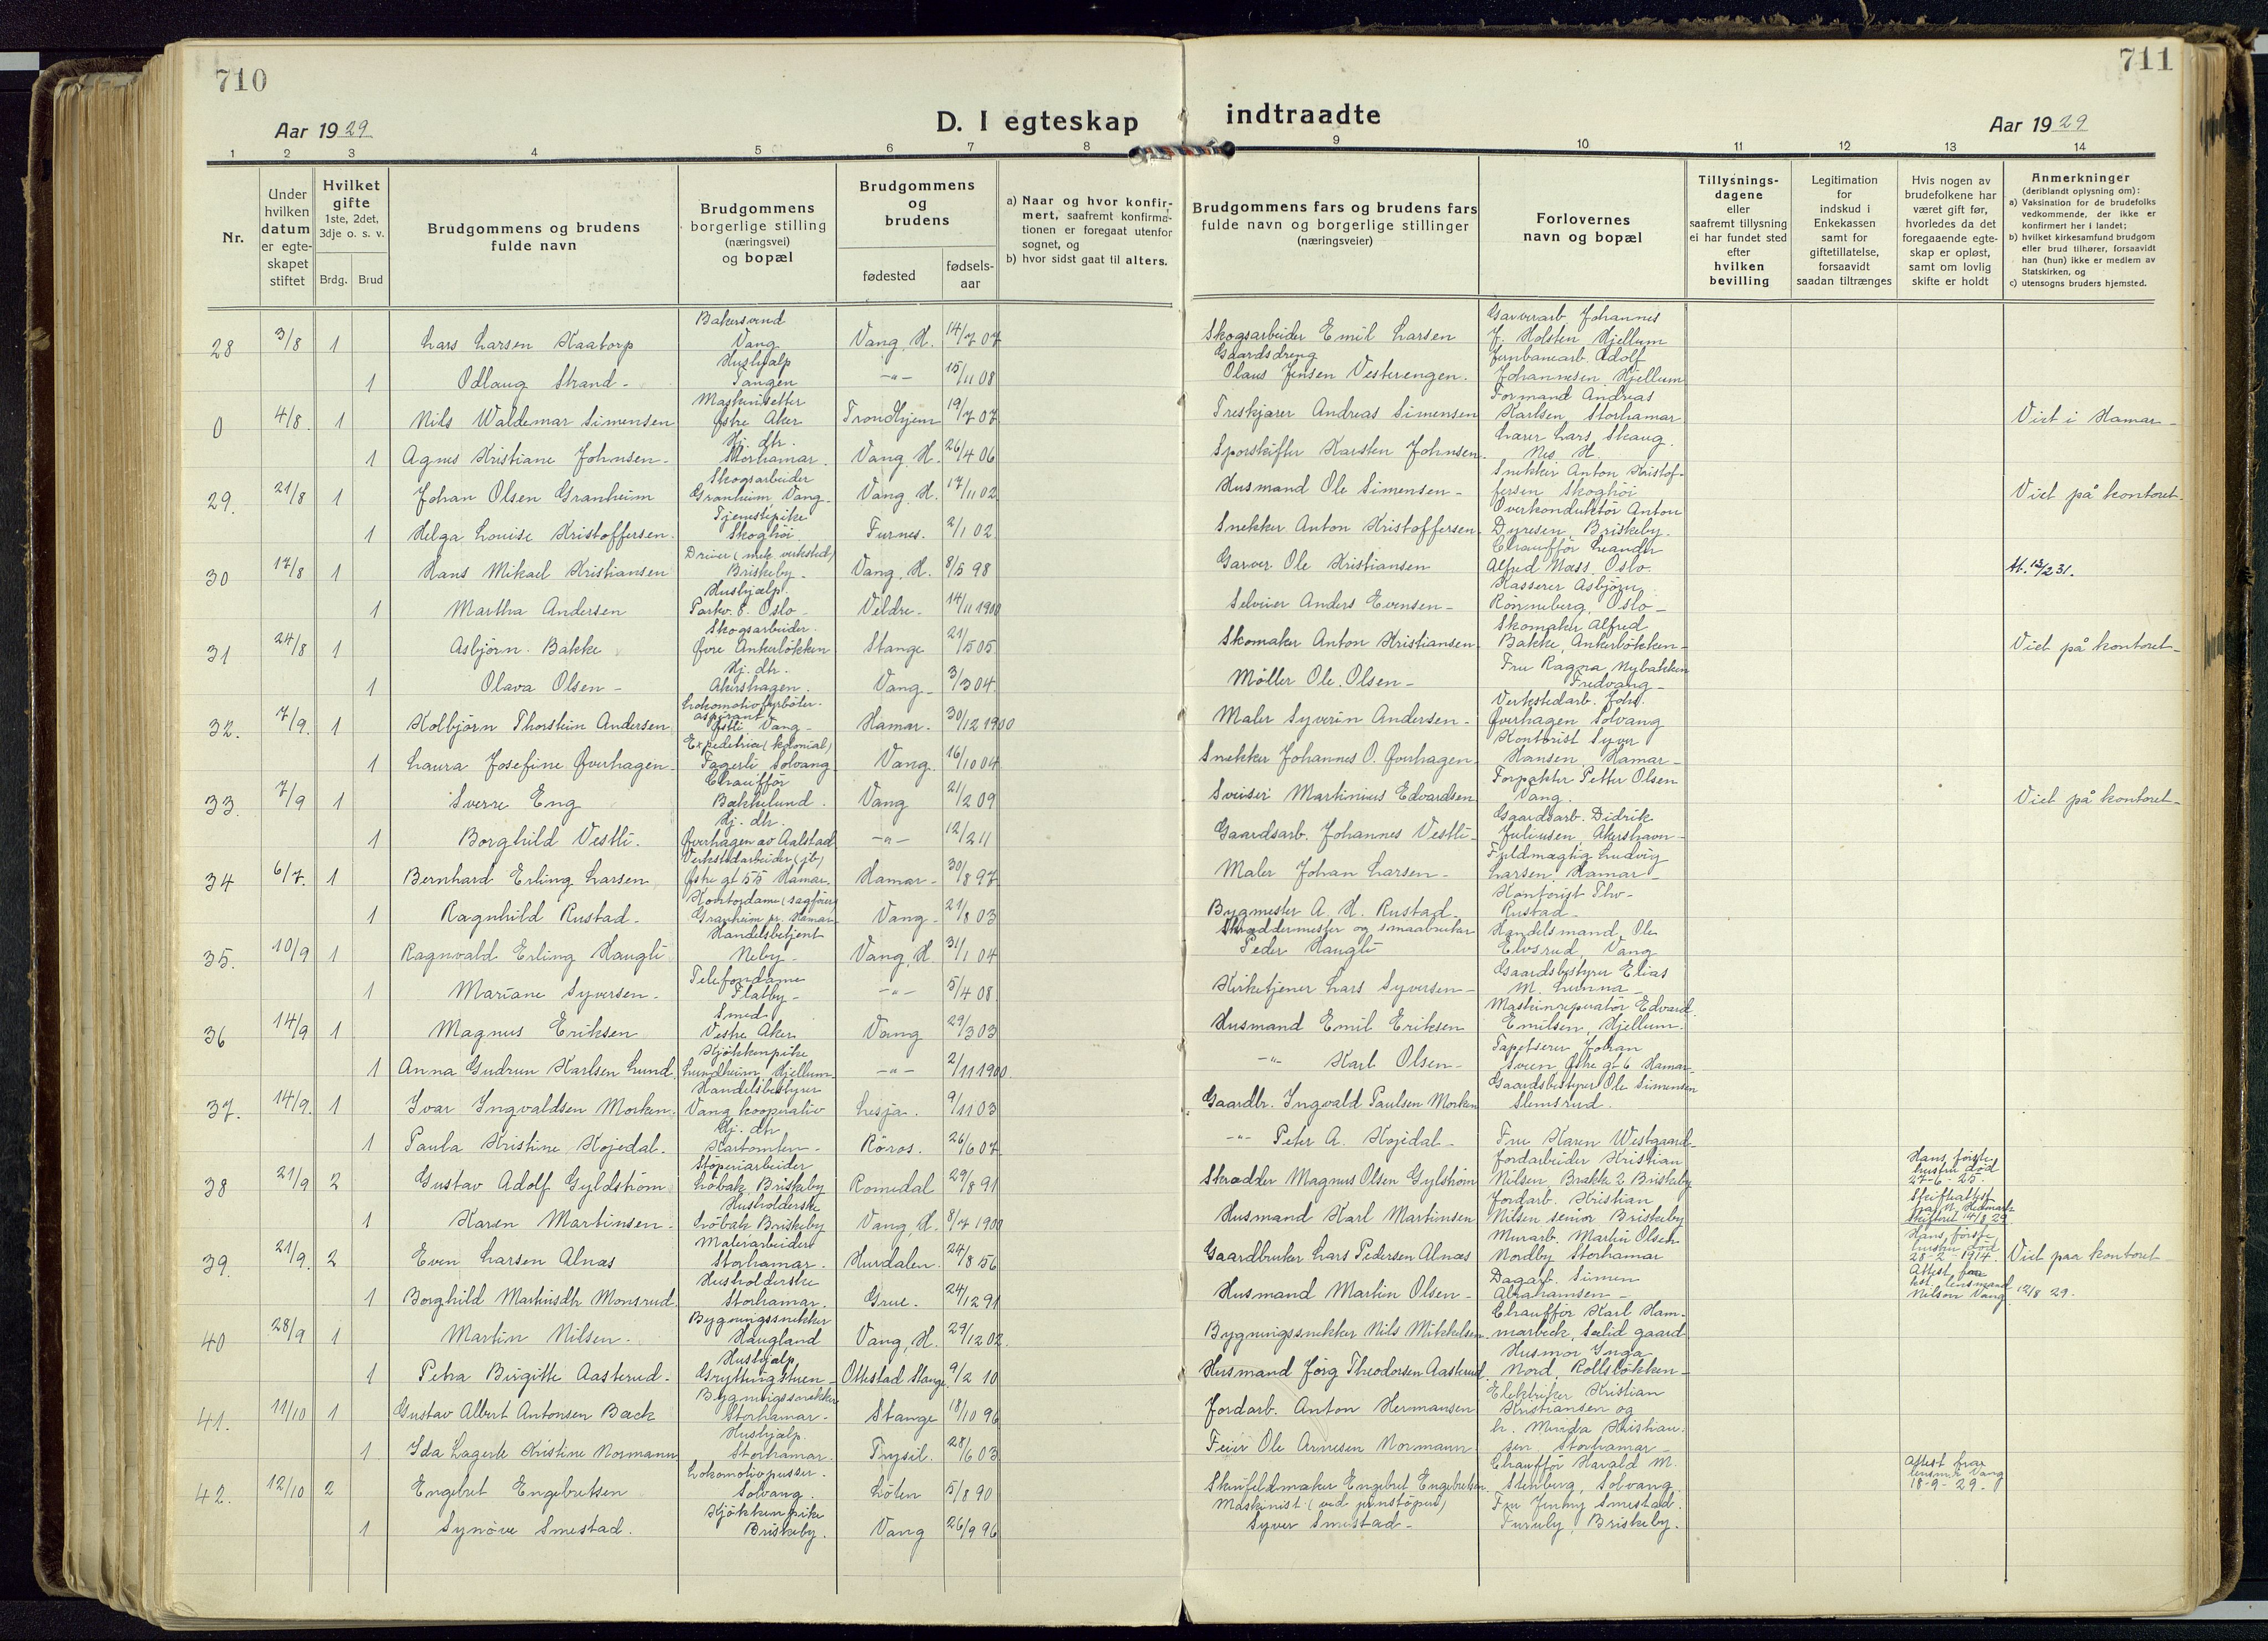 710
711
Aar 1929
D. I egteskap indtraadte
Aar 1929
1 2 3 4 5 6 7 8 9 10 11 12 13 14
Nr.
Under hvilken datum er egteskapet stiftet
Hvilket gifte 1ste, 2det, 3dje o. s. v.
Brdg. Brud
Brudgommens og brudens fulde navn
Brudgommens borgerlige stilling (næringsvei) og bopæl
Brudgommens og brudens
fødested
fødsels-aar
a) Naar og hvor konfirmert, saafremt konfirmationen er foregaat utenfor sognet, og
b) hvor sidst gaat til alters.
Brudgommens fars og brudens fars fulde navn og borgerlige stillinger (næringsveier)
Forlovernes navn og bopæl
Tillysningsdagene eller saafremt tillysning ei har fundet sted efter hvilken bevilling
Legitimation for indskud i Enkekassen samt for giftetillatelse, forsaavidt saadan tiltrænges
Hvis nogen av brudefolkene har været gift før, hvorledes da det foregaaende egteskap er opløst, samt om lovlig skifte er holdt
Anmerkninger (deriblandt oplysning om):
a) Vaksination for de brudefolks vedkommende, der ikke er konfirmert her i landet;
b) hvilket kirkesamfund brudgom eller brud tilhører, forsaavidt han (hun) ikke er medlem av Statskirken, og
c) utensogns bruders hjemsted.
28 3/8 1 Lars Larsen Kaatorp Bakersvend Vang Vang, H. 14/7 07 Skogsarbeider Emil Larsen Garverarb. Johannes J. Holsten Hjellum
1 Odlaug Strand - Hushjalp Tangen -"- 15/11 08 Gaardsdreng Olaus Jensen Vesterengen. Jernbanearb. Adolf Johannesen Hjellum
0 4/8. 1 Nils Waldemar Simensen Maskinsetter Østre Aker Trondhjem 19/7 07 Treskjærer Andreas Simensen Formand Andreas Karlsen, Storhamar Viet i Hamar -
1 Agnes Kristiane Johnsen - Hj. dtr. Storhamar. Vang, H. 26/4 06 Sporskifter Karsten Johnsen. Lærer Lars Skaug. Nes H.
29. 21/8 1 Johan Olsen Granheim Skogsarbeider Granheim, Vang - Vang H. 17/11 02 Husmand Ole Simensen - Snekker Anton Kristoffersen Skoghöi Viet på kontoret -
1 Helga Louise Kristoffersen. Tjenestepike Skoghöi Furnes. 2/1 02 Snekker Anton Kristoffersen Overkonduktör Anton Dyresen, Briskeby.
30 17/8 1 Hans Mikael Kristiansen Dreier (mek. verksted) Briskeby - Vang, H. 8/5 98 Garver Ole Kristiansen Chaufför Leander Alfred Næss, Oslo. At. 13/2 31.
1 Martha Andersen Hushjalp. Parkv. 8. Oslo - Veldre - 14/11 1900 Selveier Anders Evensen - Kasserer Asbjörn Rönneberg, Oslo -
31 24/8 1 Asbjørn Bakke Skogsarbeider. Øvre Ankerlökken Stange 21/5 05 Skomaker Anton Kristiansen Skomaker Alfred Bakke, Ankerlökken - Viet på kontoret -
1 Olava Olsen - Hj. dtr. Akershagen. Vang - 3/3 04. Møller Ole Olsen - Fru Ragna Nybakken Fredvang -
32. 7/9. 1 Kolbjørn Thorstein Andersen Lokomotivfyrböter-aspirant Østre Vang - Hamar. 30/12 1900 Maler Syverin Andersen - Verkstedarb. Johs. Øverhagen Solvang
1 Laura Josefine Øverhagen. Expeditrice (kolonial) Fagerli Solvang Vang. 16/10 04 Snekker Johannes O. Øverhagen Kontorist Syver Hansen, Hamar -
33. 7/9 1 Sverre Eng Chaufför Bakkelund. Vang 21/2 09 Sveiser Martinius Edvardsen Forpakter Petter Olsen Vang. Viet på kontoret -
1 Borghild Vestli. Hj. dtr. Øverhagen av Aalstad -"- 12/2 11 Gaardsarb. Johannes Vestli - Gaardsarb. Didrik Juliusen, Akershavn -
34 6/7. 1 Bernhard Erling Larsen Verkstedarbeider (jb) Østre gt 55 Hamar. Hamar - 30/8 97 Maler Johan Larsen - Fuldmægtig Ludvig Larsen, Hamar -
1 Ragnhild Rustad - Kontordame (sagfører) Granheim pr. Hamar - Vang - 21/8 03 Bygmester A. H. Rustad. Kontorist Tho- Rustad -
35. 10/9 1 Ragnvald Erling Haugli Handelsbetjent Neby - Vang, H. 31/1 04 Skræddermester og smaabruker Peder Haugli Handelsmand Ole Elvsrud, Vang
1 Mariane Syversen. Telefondame Flatby - -"- 5/4 08 Kirketjener Lars Syversen - Gaardsbestyrer Elias M. Lunna -
36 14/9 1 Magnus Eriksen Smed Vestre Aker Vang 29/3 03 Husmand Emil Eriksen Maskinreparatör Edvard Emilsen, Hjellum.
1 Anna Gudrun Karlsen Lund. Kjökkenpike Lundheim, Hjellum - -"- 2/11 1900 -"- Karl Olsen - Tapetserer Johan Sveen Østre gt 6 Hamar -
37. 14/9. 1 Ivar Ingvaldsen Morken. Handelsbestyrer Vang kooperativ Lesja. 9/11 03 Gaardbr. Ingvald Paulsen Morken Gaardsbestyrer Ole Simensen Slemsrud.
1 Paula Kristine Kojedal. Hj. dtr. Kartomten - Röros. 26/6 07 -"- Peter A. Kojedal - Fru Karen Westgaard -
38 21/9 2 Gustav Adolf Gyldström Stöperiarbeider Löbak, Briskeby Romedal 29/8 91 Skrædder Magnus Olsen Gylström Jordarbeider Kristian Nilsen, Brakke 2 Briskeby Hans første hustru död 27-6-25. Skifteattest fra N. Hedmark Skifteret 14/8 29
1 Karen Martinsen - Husholderske Löbak, Briskeby Vang, H. 8/7 1900 Husmand Karl Martinsen Jordarb. Kristian Nilsen senior Briskeby
39. 21/9. 2 Even Larsen Alnæs Malerarbeider Storhamar. Hurdalen. 24/8 56 Gaardbruker Lars Pedersen Alnæs Murarb. Martin Olsen Nordby Storhamar Hans første hustru död 28-2-1914. Attest fra kst. lensmand Nilsen Vang 12/8 29. Viet paa kontoret
1 Borghild Martinsdtr Monsrud. Husholderske Storhamar. Grue. 24/12 91 Husmand Martin Olsen - Dagarb. Simen Abrahamsen -
40 28/9 1 Martin Nilsen. Bygningssnekker Haugland Vang, H. 29/12 02. Bygningssnekker Nils Mikkelsen Chaufför Karl Hammarbeck, Sælid gaard
1 Petra Birgitte Aasterud. Hushjalp, Gryttingstuen - Ottestad Stange 9/2 10 Husmand Jörg Theodorsen Aasterud Husmor Inga Nord, Rollslökken -
41. 11/10 1 Gustav Albert Antonsen Bæck Bygningssnekker Storhamar - Stange 18/10 96 Jordarb. Anton Hermansen Elektriker Kristian Kristiansen og
1 Ida Lagerte Kristine Normann Hushjalp. Storhamar. Trysil. 28/6 03 Feier Ole Arnesen Normann fr. Minda Kristiansen, Storhamar -
42. 12/10 2 Engebret Engebretsen Lokomotivpusser. Solvang. Löten 5/8 90 Skinfeldmaker Engebret Engebretsen Chaufför Harald M. Stenberg, Solvang. Attest fra lensm. i Vang 18-9-29.
1 Synöve Smestad. Kjökkenpike Briskeby. Vang 26/9 96 Maskinist (ved jernstöperi) Syver Smestad - Fru Jenny Smestad. Furuly, Briskeby.